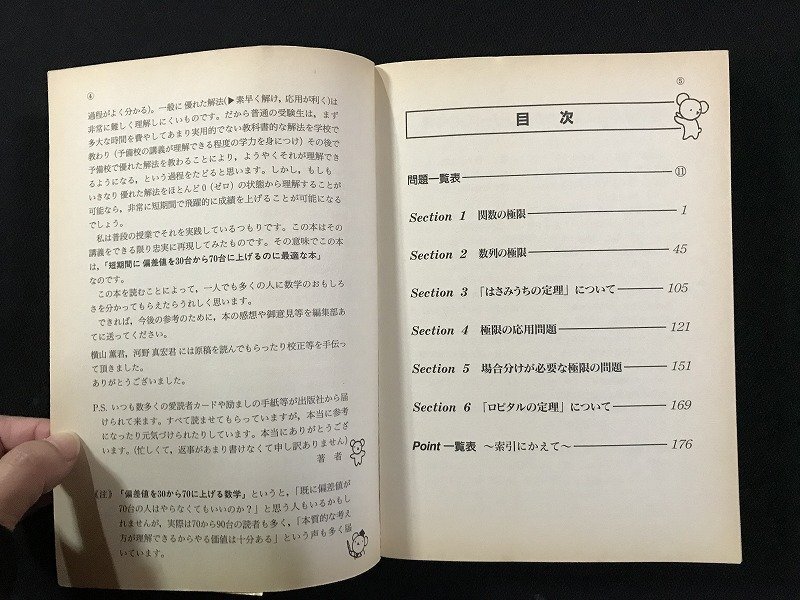 ④
過程がよく分かる)。一般に優れた解法(▶素早く解け，応用が利く)は
非常に難しく理解しにくいものです。だから普通の受験生は，まず
多大な時間を費やしてあまり実用的でない教科書的な解法を学校で
教わり (予備校の講義が理解できる程度の学力を身につけ) その後で
予備校で優れた解法を教わることにより，ようやくそれが理解でき
るようになる，という過程をたどると思います。しかし，もしも
いきなり優れた解法をほとんど０(ゼロ) の状態から理解することが
可能なら，非常に短期間で飛躍的に成績を上げることが可能になる
でしょう。
私は普段の授業でそれを実践しているつもりです。この本はその
講義をできる限り忠実に再現してみたものです。その意味でこの本
は，「短期間に偏差値を30台から70台に上げるのに最適な本」
なのです。
この本を読むことによって，一人でも多くの人に数学のおもしろ
さを分かってもらえたらうれしく思います。
できれば，今後の参考のために，本の感想や御意見等を編集部あ
てに送ってください。
横山 薫君，河野 真宏君 には原稿を読んでもらったり校正等を手伝っ
て頂きました。
ありがとうございました。
P.S. いつも数多くの愛読者カードや励ましの手紙等が出版社から届
けられて来ます。すべて読ませてもらっていますが，本当に参考
になったり元気づけられたりしています。本当にありがとうござ
います。(忙しくて，返事があまり書けなくて申し訳ありません)
著 者
(注) 「偏差値を30から70に上げる数学」というと，「既に偏差値が
70台の人はやらなくてもいいのか？」と思う人もいるかもし
れませんが，実際は70から90台の読者も多く，「本質的な考え
方が理解できるからやる価値は十分ある」という声も多く届
いています。
⑤
目 次
問題一覧表 ⑪
Section 1 関数の極限 1
Section 2 数列の極限 45
Section 3 「はさみうちの定理」について 105
Section 4 極限の応用問題 121
Section 5 場合分けが必要な極限の問題 151
Section 6 「ロピタルの定理」について 169
Point 一覧表 〜索引にかえて〜 176